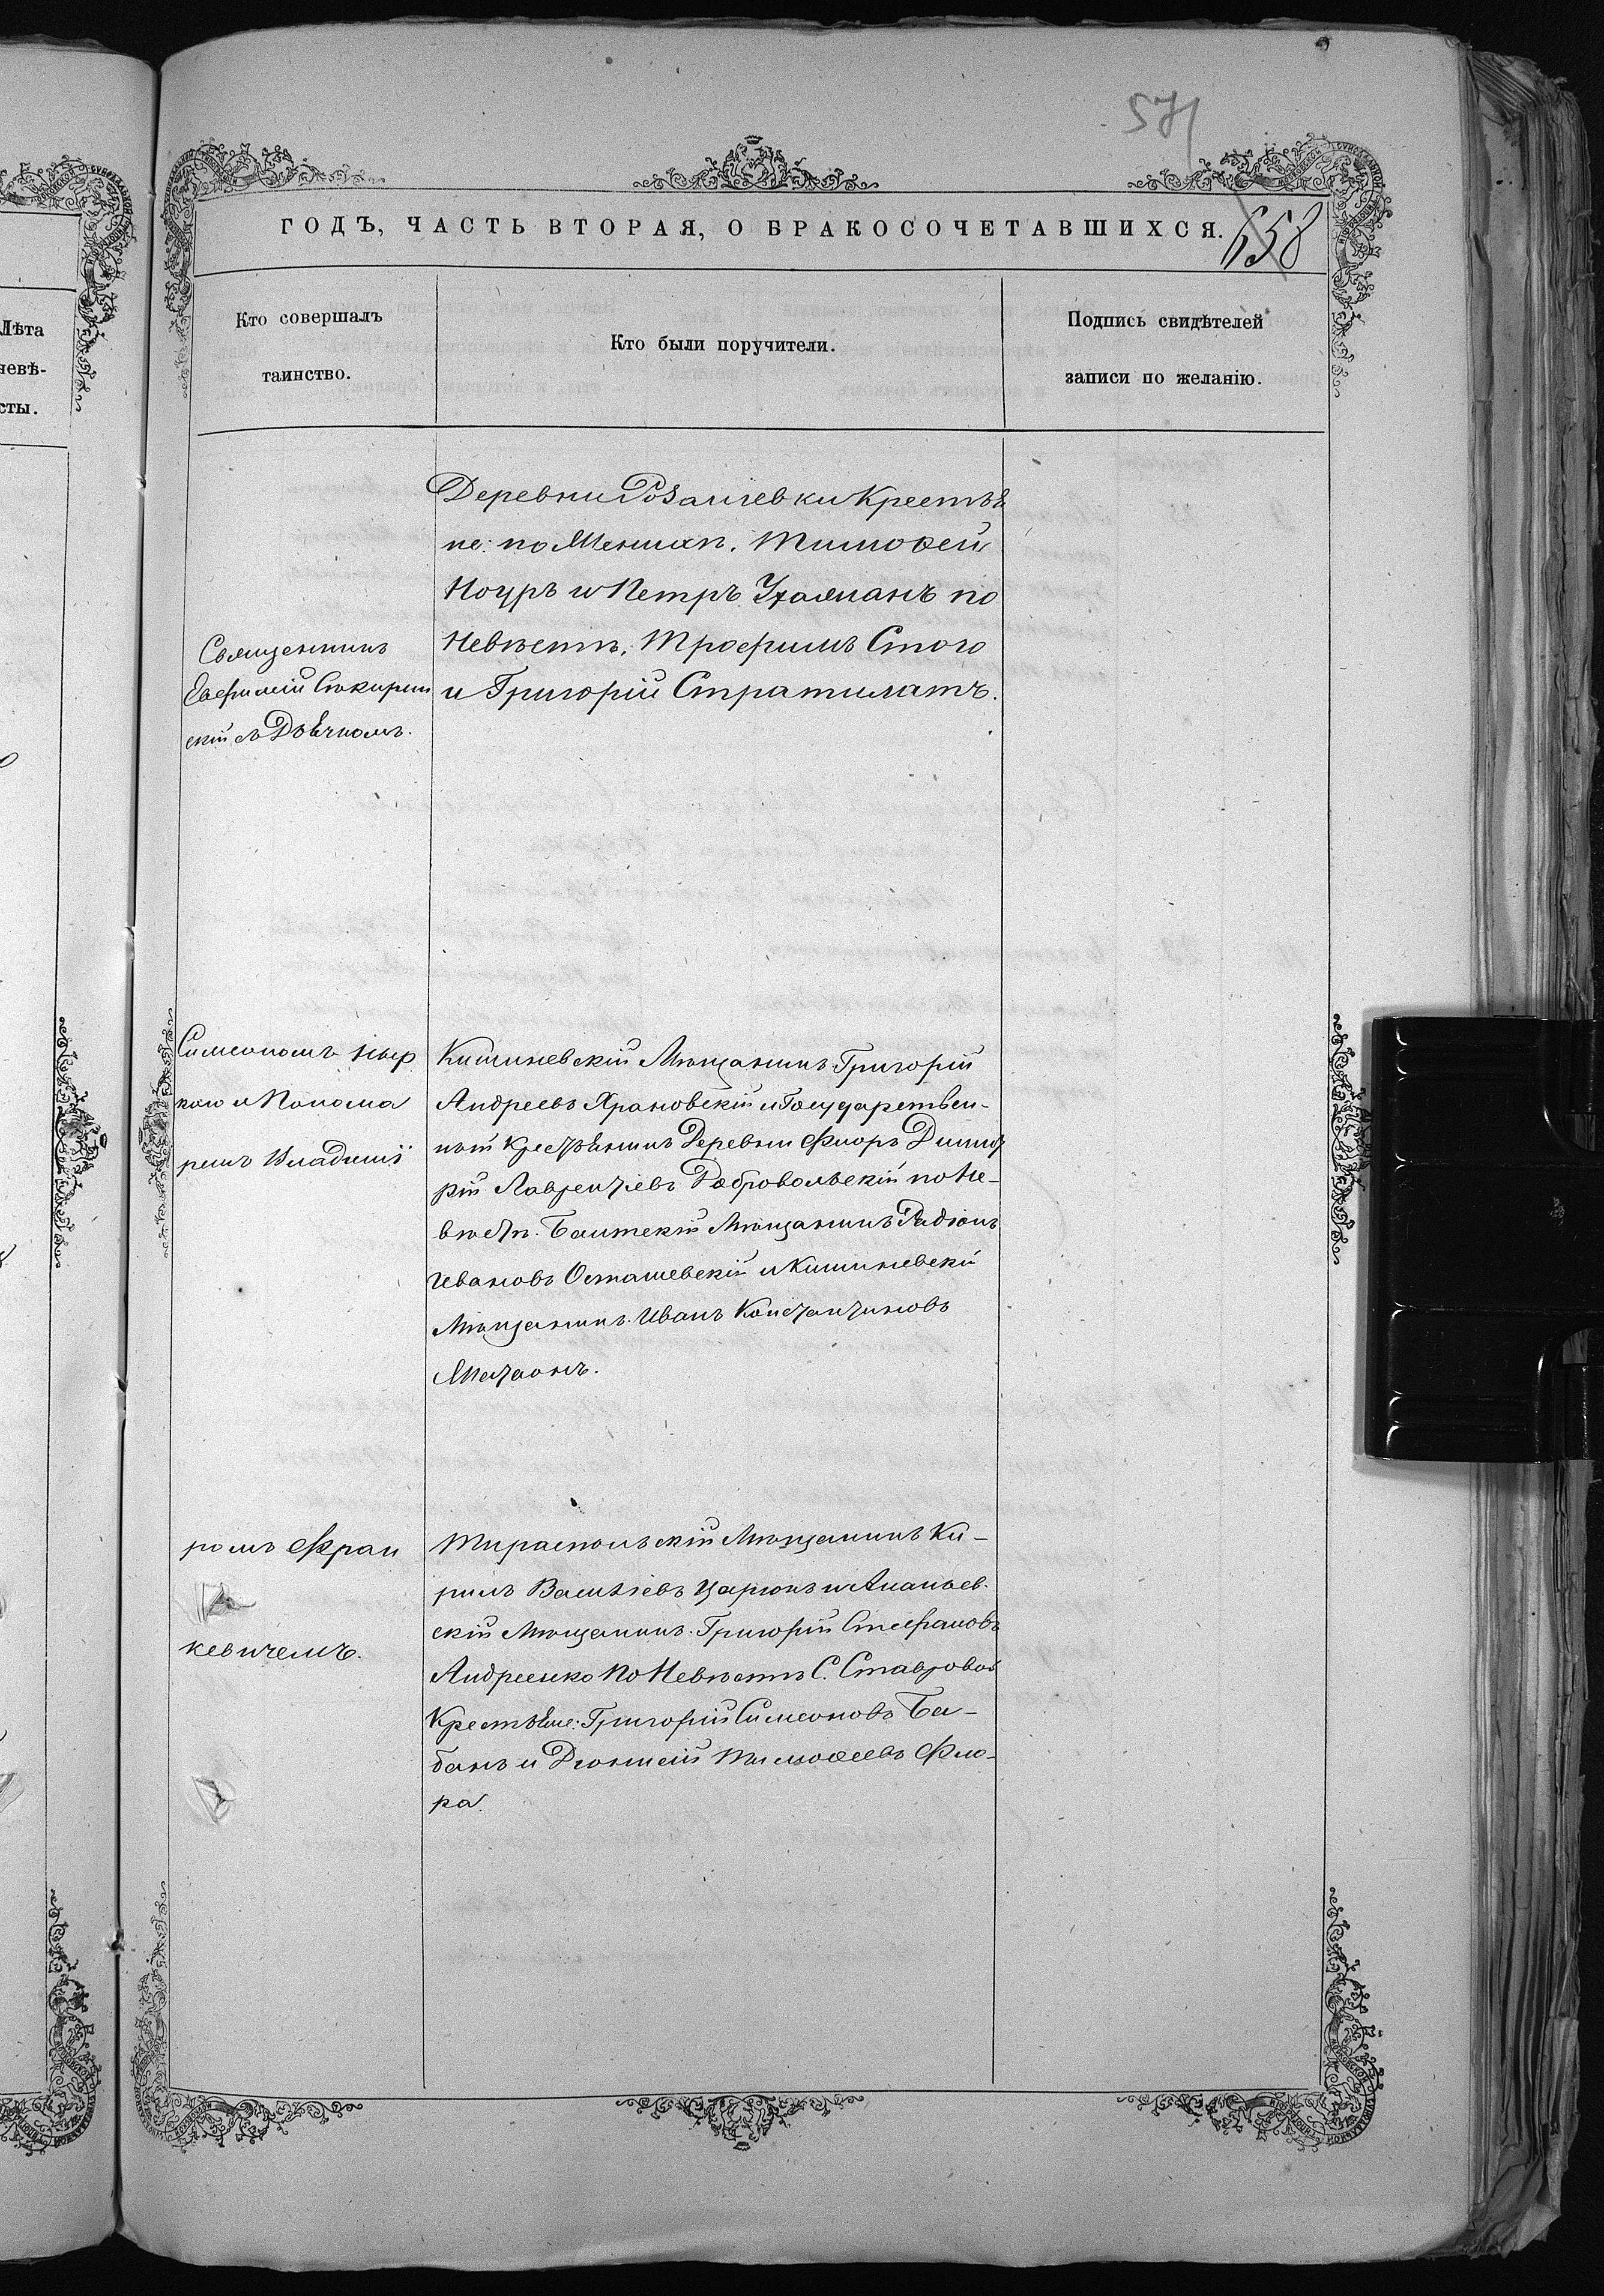 571
ГОДЪ, ЧАСТЬ ВТОРАЯ, О БРАКОСОЧЕТАВШИХСЯ.
658
Лѣта
невѣ-
сты.
Кто совершалъ
таинство.
Кто были поручители.
Подпись свидѣтелей
записи по желанію.
Священникъ
Евфимій
скій съ Дьячкомъ.
Деревни Розаліевки Крестья
не: по Женихѣ. Тимофей
Ноуръ и Петръ по
Невѣстѣ. Трофимъ Стого
и Григорій Стратилатъ.
Симеономъ
кою и Понома
ремъ Владимі
Кишиневскій Мѣщанинъ Григорій
Андреевъ Храновскій и Государствен-
ный Крестьянинъ Деревни Флоръ Димит
рій Лаврентьевъ Добровольскій по Не-
вѣстѣ. Балтскій Мѣщанинъ Радіонъ
Ивановъ Осташевскій и Кишиневскій
Мѣщанинъ Иванъ Константиновъ
ромъ Фран
кевичемъ.
Тираспольскій Мѣщанинъ Ки-
рилъ Васильевъ Царюкъ и Ананьев-
скій Мѣщанинъ Григорій Стефановъ
Андреенко по Невѣстѣ С. Ставровой
Крестьяне: Григорій Симеоновъ Ба-
банъ и Діонисій Тимофеевъ Фло-
ра.